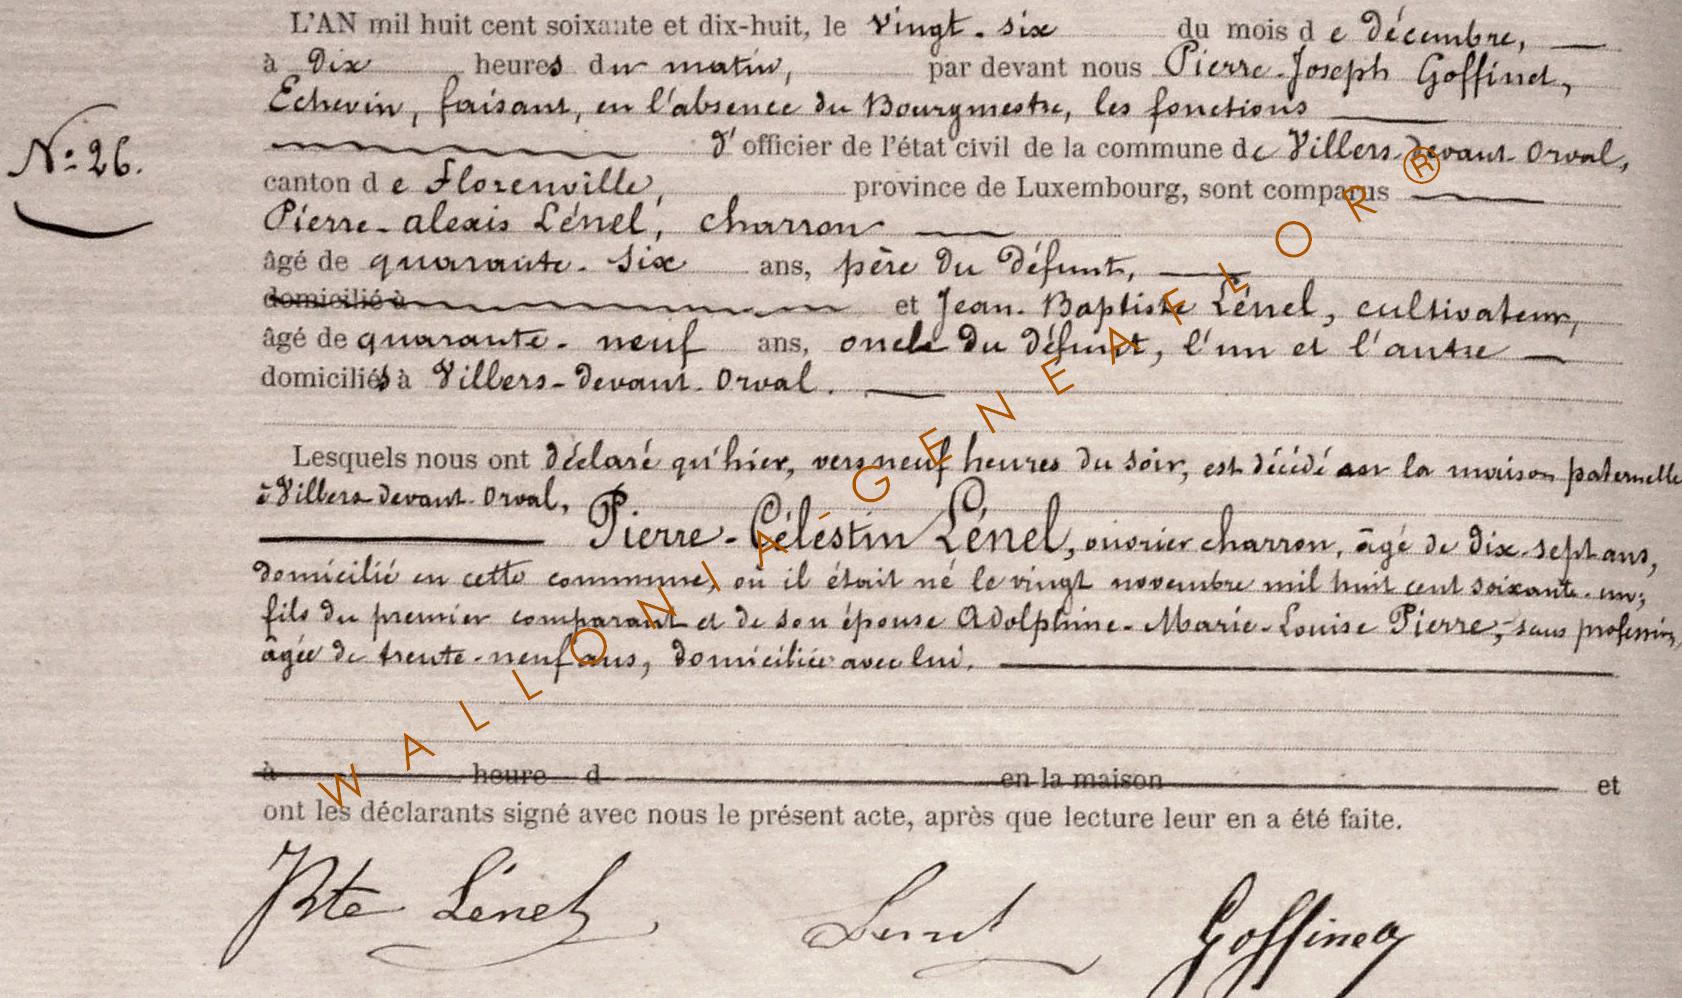 L'AN mil huit cent soixante et dix-huit, le vingt-six du mois de décembre,
à dix heures du matin, par devant nous Pierre-Joseph Goffinet,
Echevin, faisant, en l'absence du Bourgmestre, les fonctions
d'officier de l'état civil de la commune de Villers-devant-Orval,
N° 26.
canton de Florenville, province de Luxembourg, sont comparus
Pierre-Alexis Lénel, charron
âgé de quarante-six ans, père du défunt,
domicilié à et Jean-Baptiste Lénel, cultivateur,
âgé de quarante-neuf ans, oncle du défunt, l'un et l'autre
domiciliés à Villers-devant-Orval.
Lesquels nous ont déclaré qu'hier, vers neuf heures du soir, est décédé en la maison paternelle
à Villers-devant-Orval,
Pierre-Céléstin Lénel, ouvrier charron, âgé de dix-sept ans,
domicilié en cette commune, où il était né le vingt novembre mil huit cent soixante-un;
fils du premier comparant et de son épouse Adolphine-Marie-Louise Pierre, sans profession,
âgée de trente-neuf ans, domiciliée avec lui.
à heure d en la maison et
ont les déclarants signé avec nous le présent acte, après que lecture leur en a été faite.
JBte Lénel Lénel Goffinet
WALLONIA-GENEAFLOR®